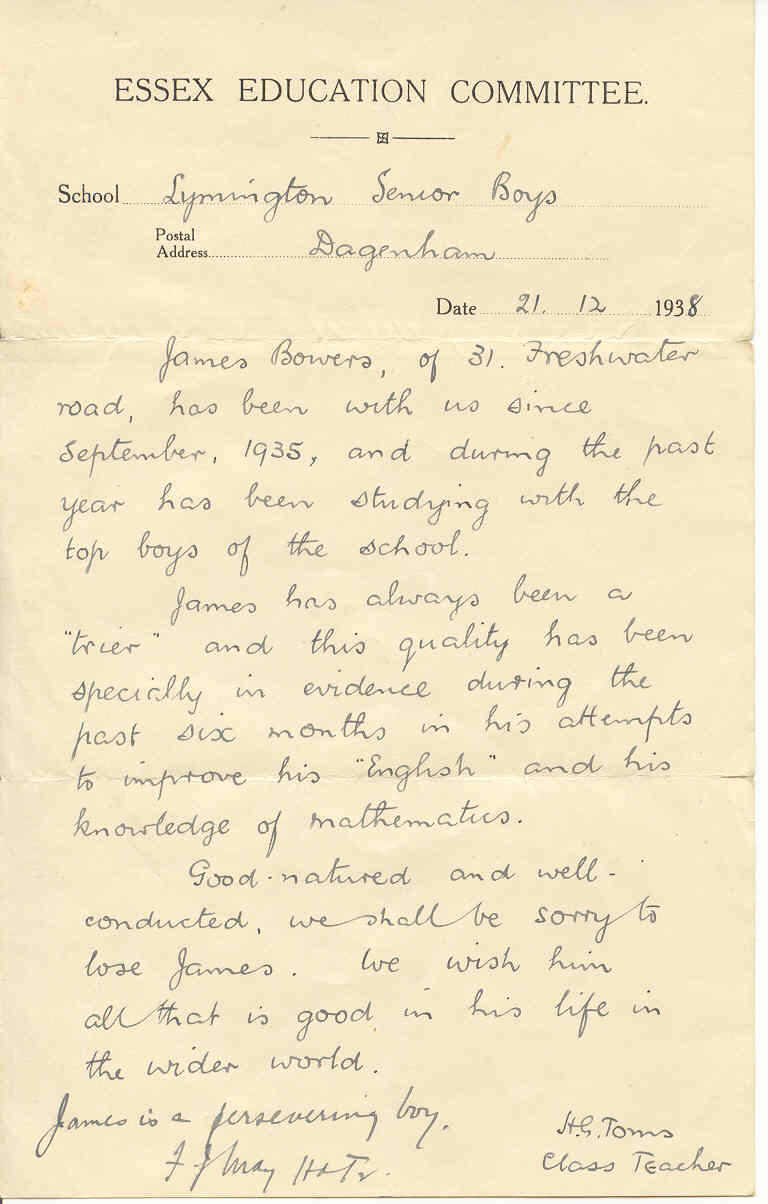 ESSEX EDUCATION COMMITTEE.
School Lymington Senior Boys
Postal Address Dagenham
Date 21. 12 1938
James Bowers, of 31. Freshwater
road, has been with us since
September, 1935, and during the past
year has been studying with the
top boys of the school.
James has always been a
"trier" and this quality has been
specially in evidence during the
past six months in his attempts
to improve his "English" and his
knowledge of mathematics.
Good-natured and well-
conducted, we shall be sorry to
lose James. We wish him
all that is good in his life in
the wider world.
James is a persevering boy.
H.G. Toms
Class Teacher